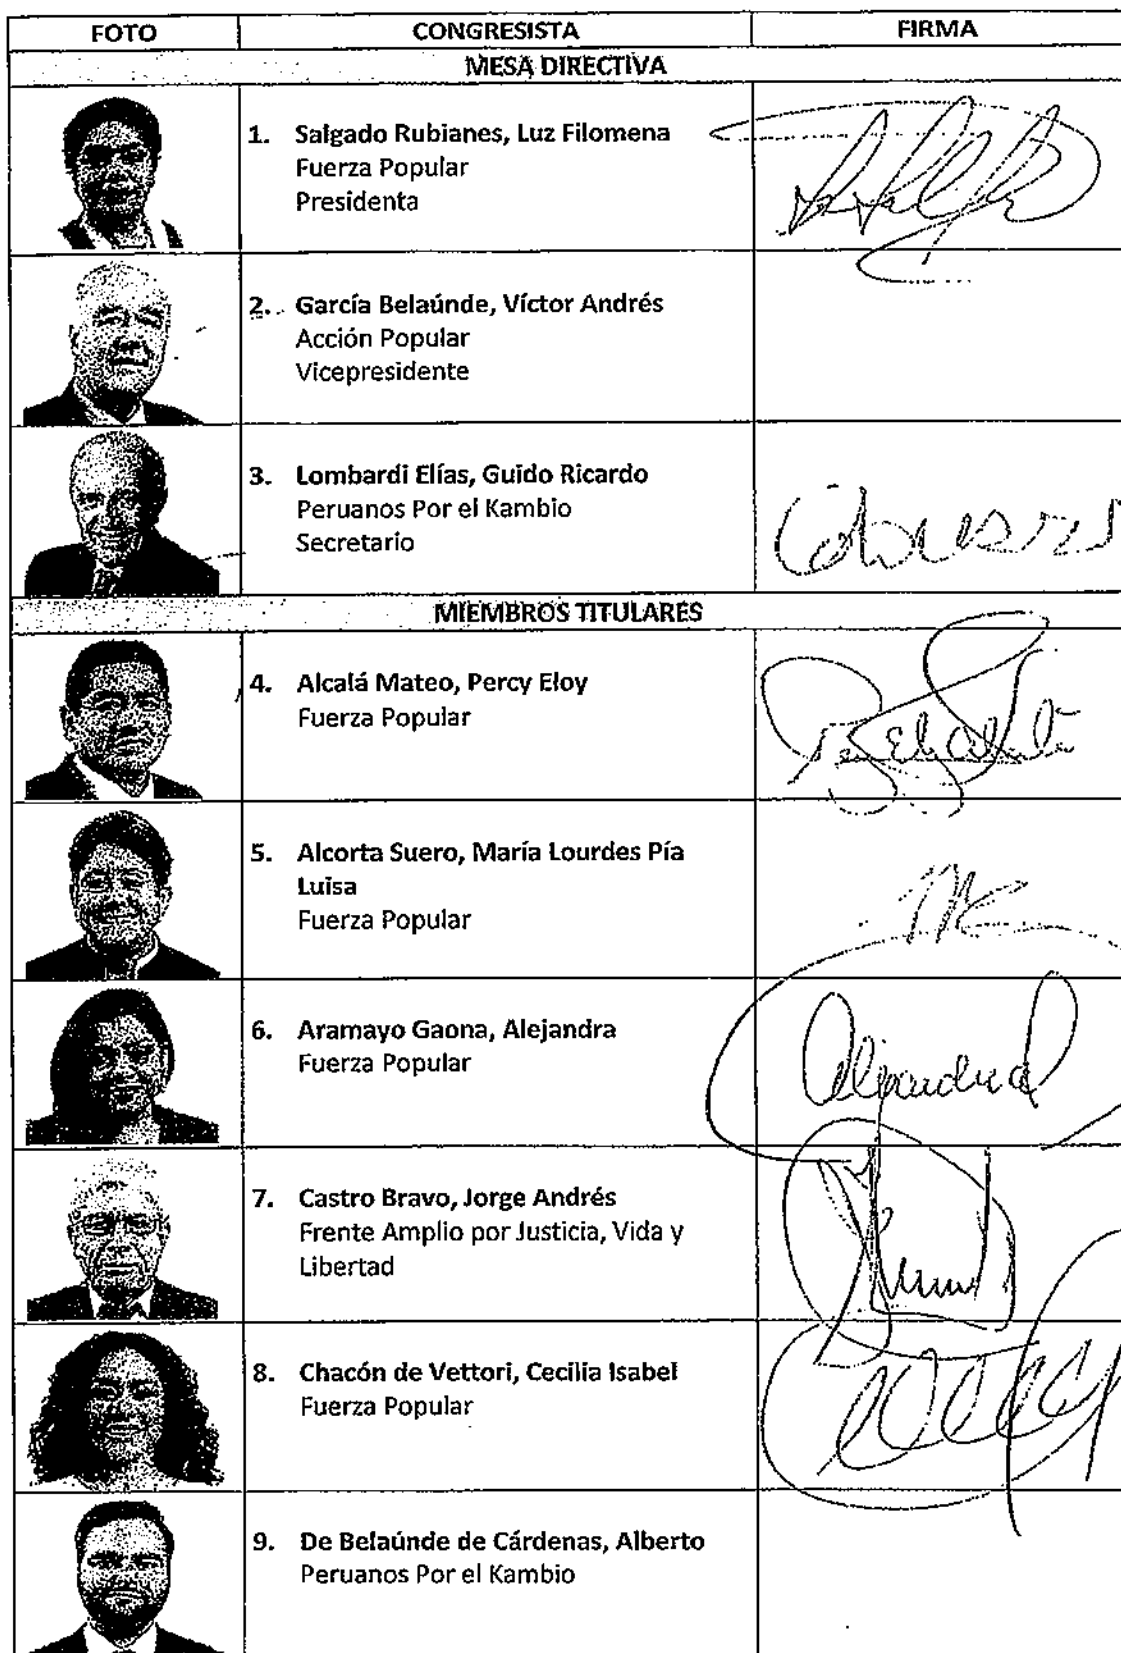 FOTO CONGRESISTA FIRMA
MESA DIRECTIVA
1. Salgado Rubianes, Luz Filomena
Fuerza Popular
Presidenta
2. García Belaúnde, Víctor Andrés
Acción Popular
Vicepresidente
3. Lombardi Elías, Guido Ricardo
Peruanos Por el Kambio
Secretario
MIEMBROS TITULARES
4. Alcalá Mateo, Percy Eloy
Fuerza Popular
5. Alcorta Suero, María Lourdes Pía
Luisa
Fuerza Popular
6. Aramayo Gaona, Alejandra
Fuerza Popular
Alejandra
7. Castro Bravo, Jorge Andrés
Frente Amplio por Justicia, Vida y
Libertad
8. Chacón de Vettori, Cecilia Isabel
Fuerza Popular
9. De Belaúnde de Cárdenas, Alberto
Peruanos Por el Kambio